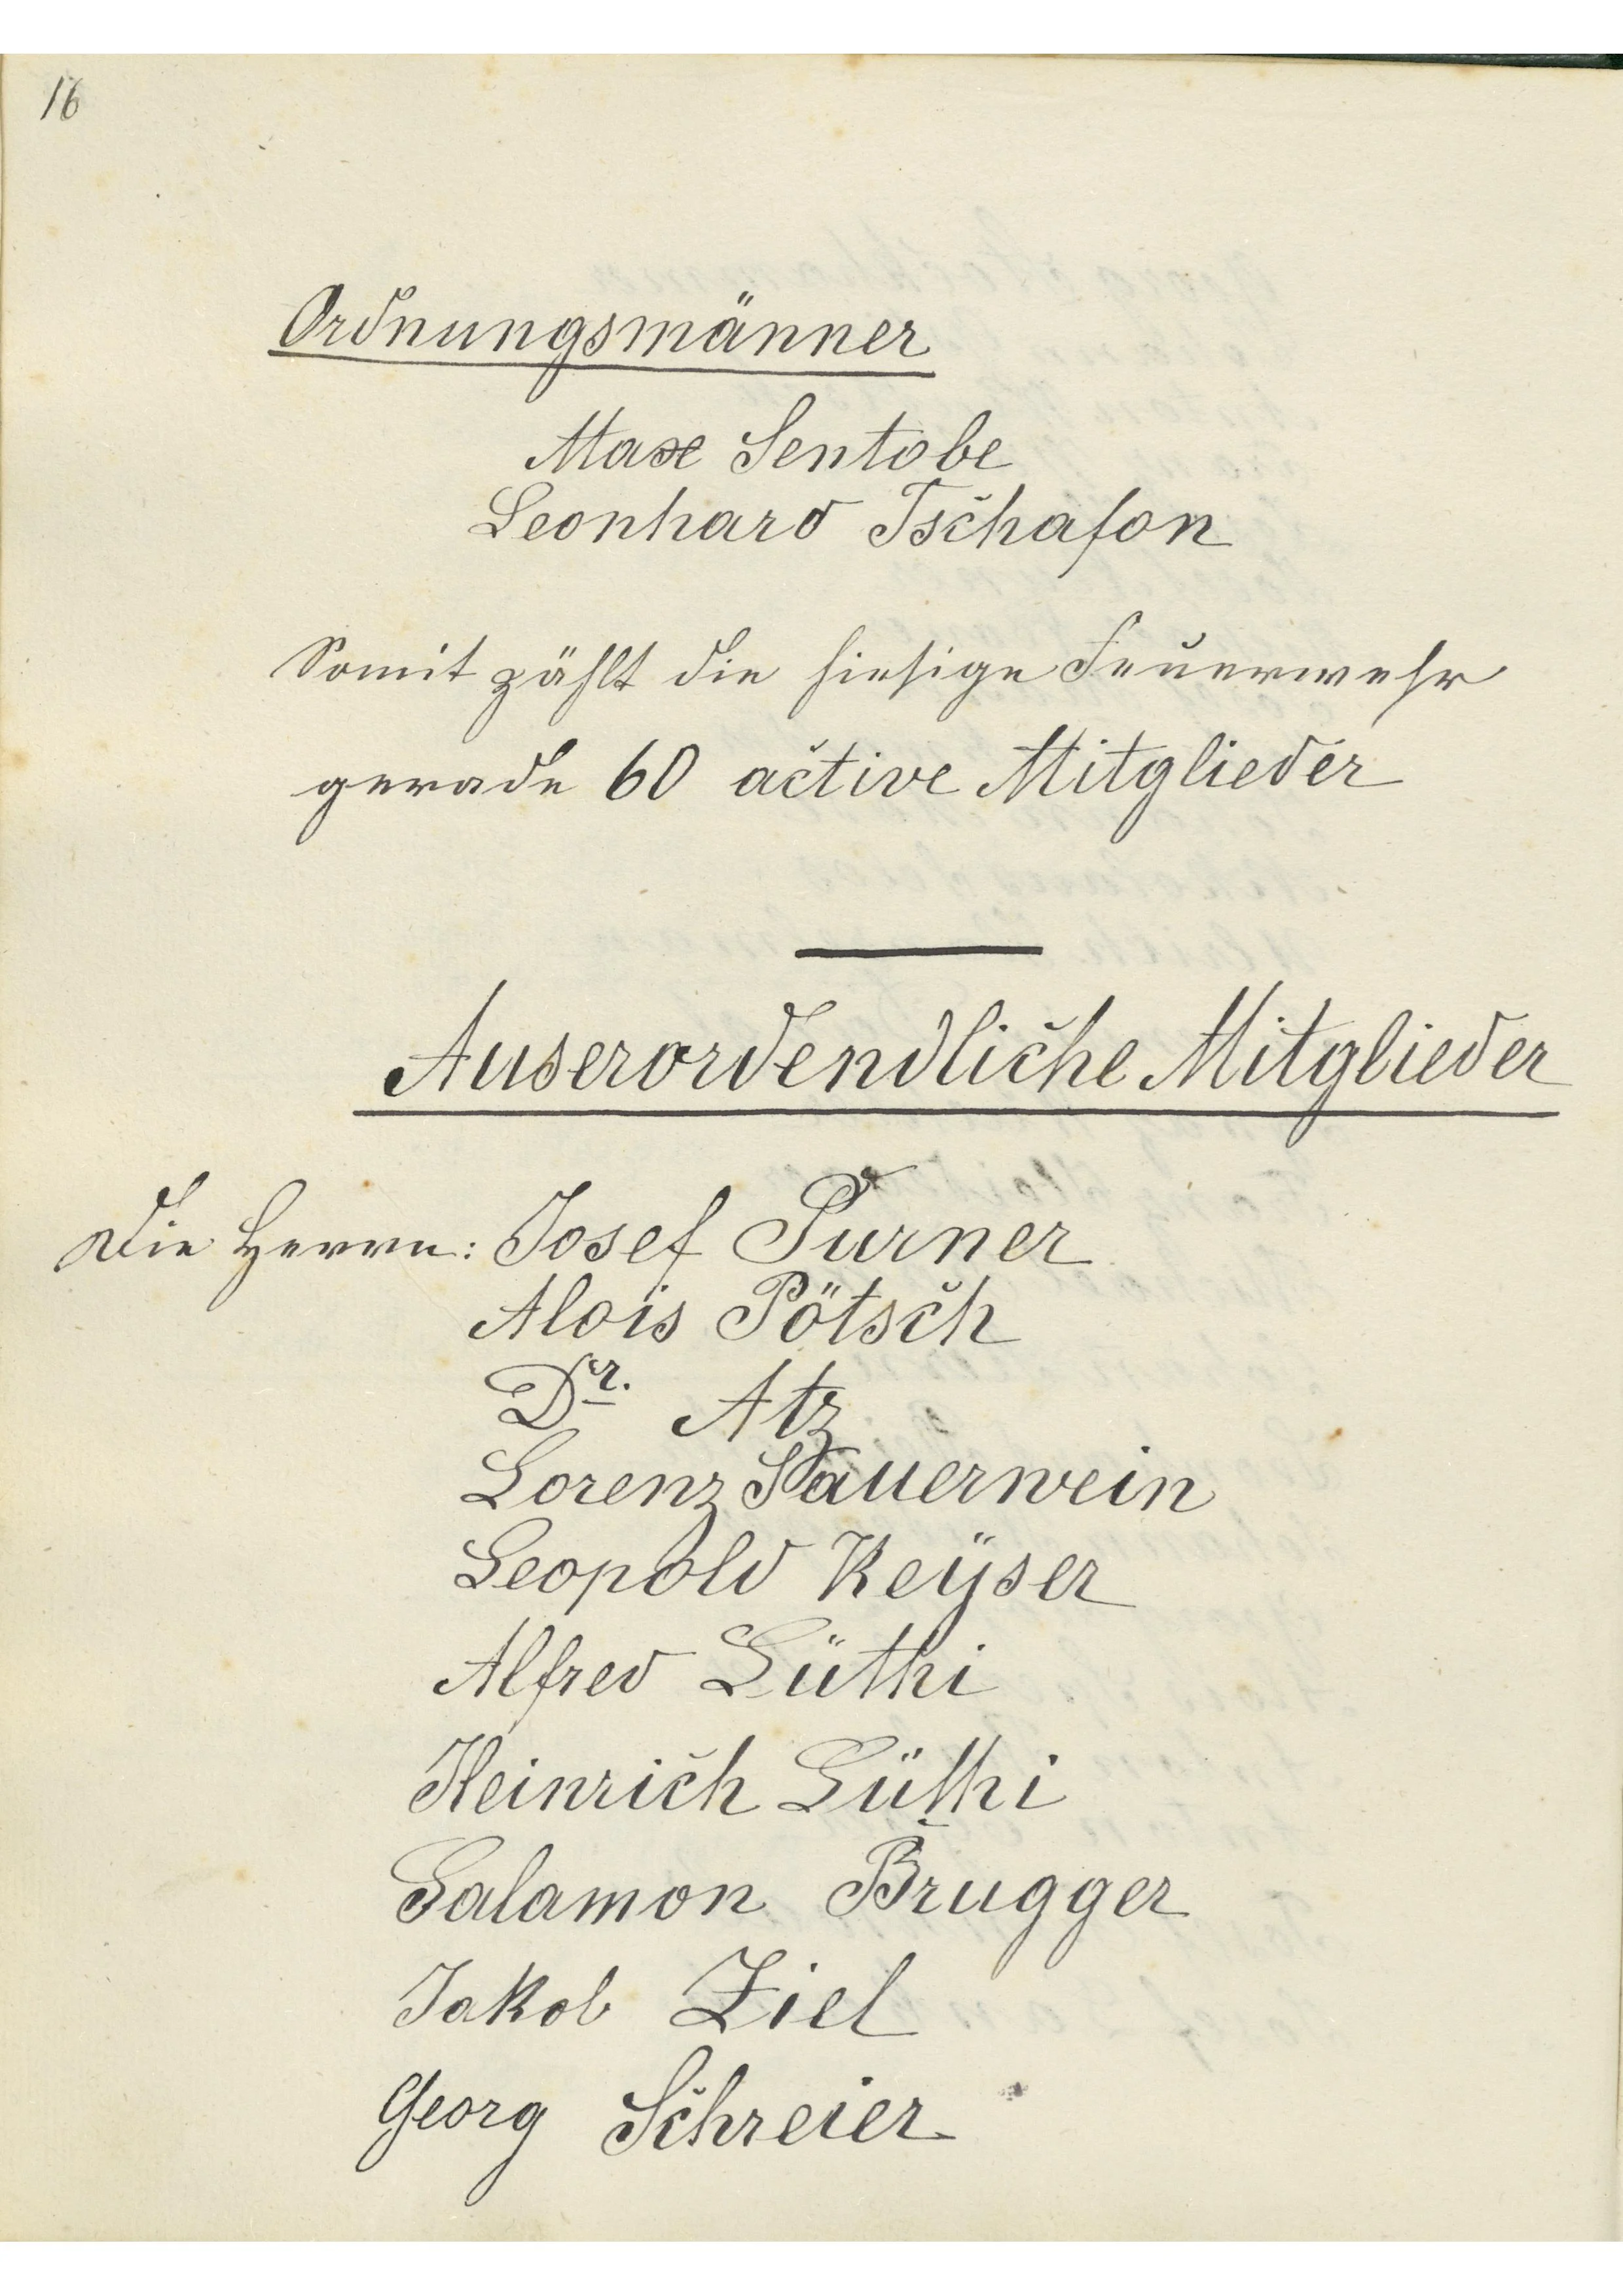 16
Ordnungsmänner
Max Sentobe
Leonhard Tschafon
Somit zählt die hiesige Feuerwehr
gerade 60 active Mitglieder
Auserordendliche Mitglieder
Die Herrn: Josef Purner
Alois Pötsch
Dr. Atz
Lorenz Sauerwein
Leopold Keÿser
Alfred Lüthi
Heinrich Lüthi
Salamon Brugger
Jakob Ziel
Georg Schreier